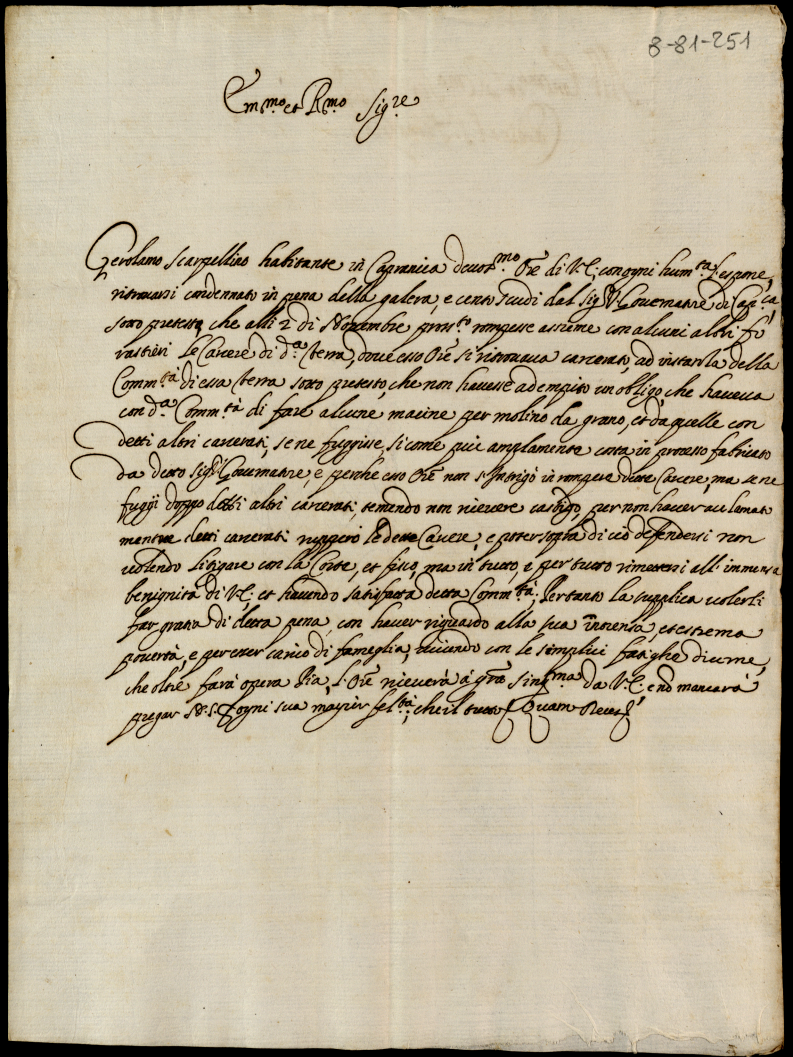 8-81-251
Em.mo et R.mo Sig.re
Gerolamo Scarpellino habitante in Capranica devot.mo Ore di V.E. con ogni hum.tà l'espone,
ritrovarsi condennato in pena della galera, e cento scudi dal Sig.r Governatore di Cap.ca
sotto pretesto, che alli 2 di Novembre pross.o rompesse assieme con alcuni altri fo
rastieri le Carcere di d.a Terra, dove esso Ore si ritrovava carcerato, ad instanza della
Comm.tà di essa Terra sotto pretesto, che non havesse adempito un obligo che haveva
con d.a Comm.tà di fare alcune macine per molino da grano, et da quelle con
detti altri carcerati, se ne fuggisse, si come più amplamente costa in processo fabricato
da detto Sig.r Governatore, e perche esso Ore non s'intrigò in rompere dette Carcere, ma se ne
fuggì doppo detti altri carcerati, temendo non ricevere castigo, per non haver acclamato
mentre detti carcerati ruppero le dette Carcere, e poter sopra di ciò defendersi non
volendo litigare con la Corte, et fisco, ma in tutto, e per tutto rimettersi all' immensa
benignità di V.E. et havendo satisfatta detta Comm.tà; Pertanto la supplica volerli
far gratia di detta pena, con haver riguardo alla sua innocenza, et estrema
povertà, e per esser carico di fameglia, vivendo con le semplici fatighe diurne,
che oltre farà opera Pia, l'Ore riceverà à gra sing.ma da V.E. e nò mancarà
pregar N.S. per ogni sua maggior fel.tà, che il tutto Quam Deus